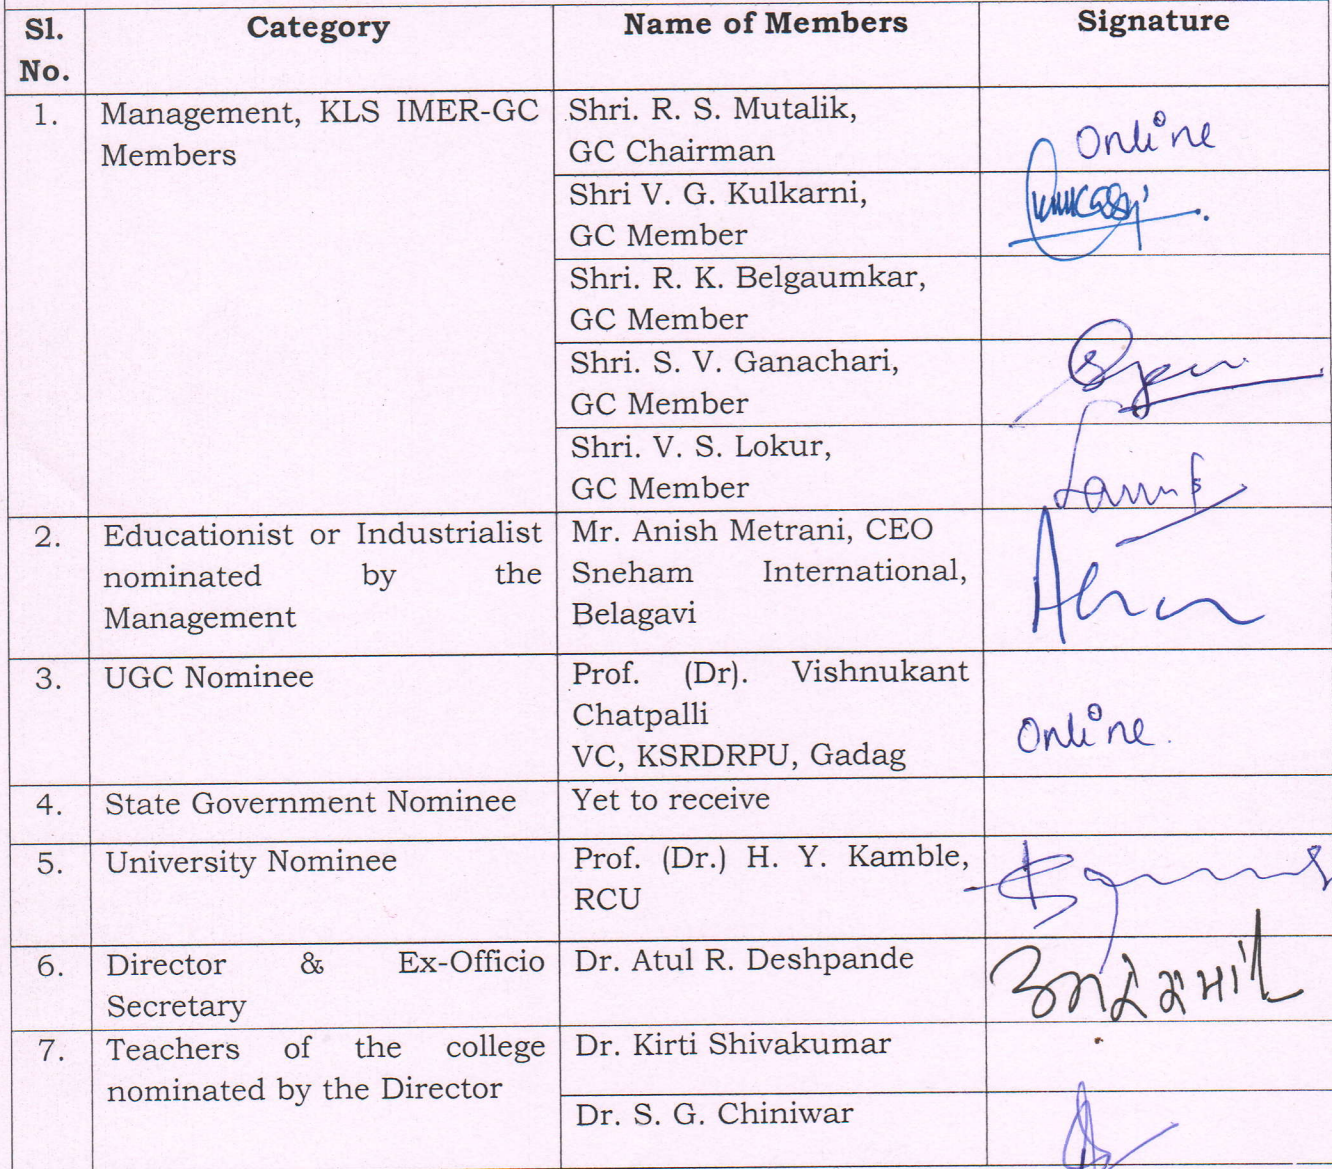 Sl. No. Category Name of Members Signature
1. Management, KLS IMER-GC Members
Shri. R. S. Mutalik,
GC Chairman
Online
Shri V. G. Kulkarni,
GC Member
Shri. R. K. Belgaumkar,
GC Member
Shri. S. V. Ganachari,
GC Member
Shri. V. S. Lokur,
GC Member
2. Educationist or Industrialist
nominated by the
Management
Mr. Anish Metrani, CEO
Sneham International,
Belagavi
3. UGC Nominee
Prof. (Dr). Vishnukant
Chatpalli
VC, KSRDRPU, Gadag
Online
4. State Government Nominee Yet to receive
5. University Nominee
Prof. (Dr.) H. Y. Kamble,
RCU
6. Director & Ex-Officio
Secretary
Dr. Atul R. Deshpande
7. Teachers of the college
nominated by the Director
Dr. Kirti Shivakumar
Dr. S. G. Chiniwar